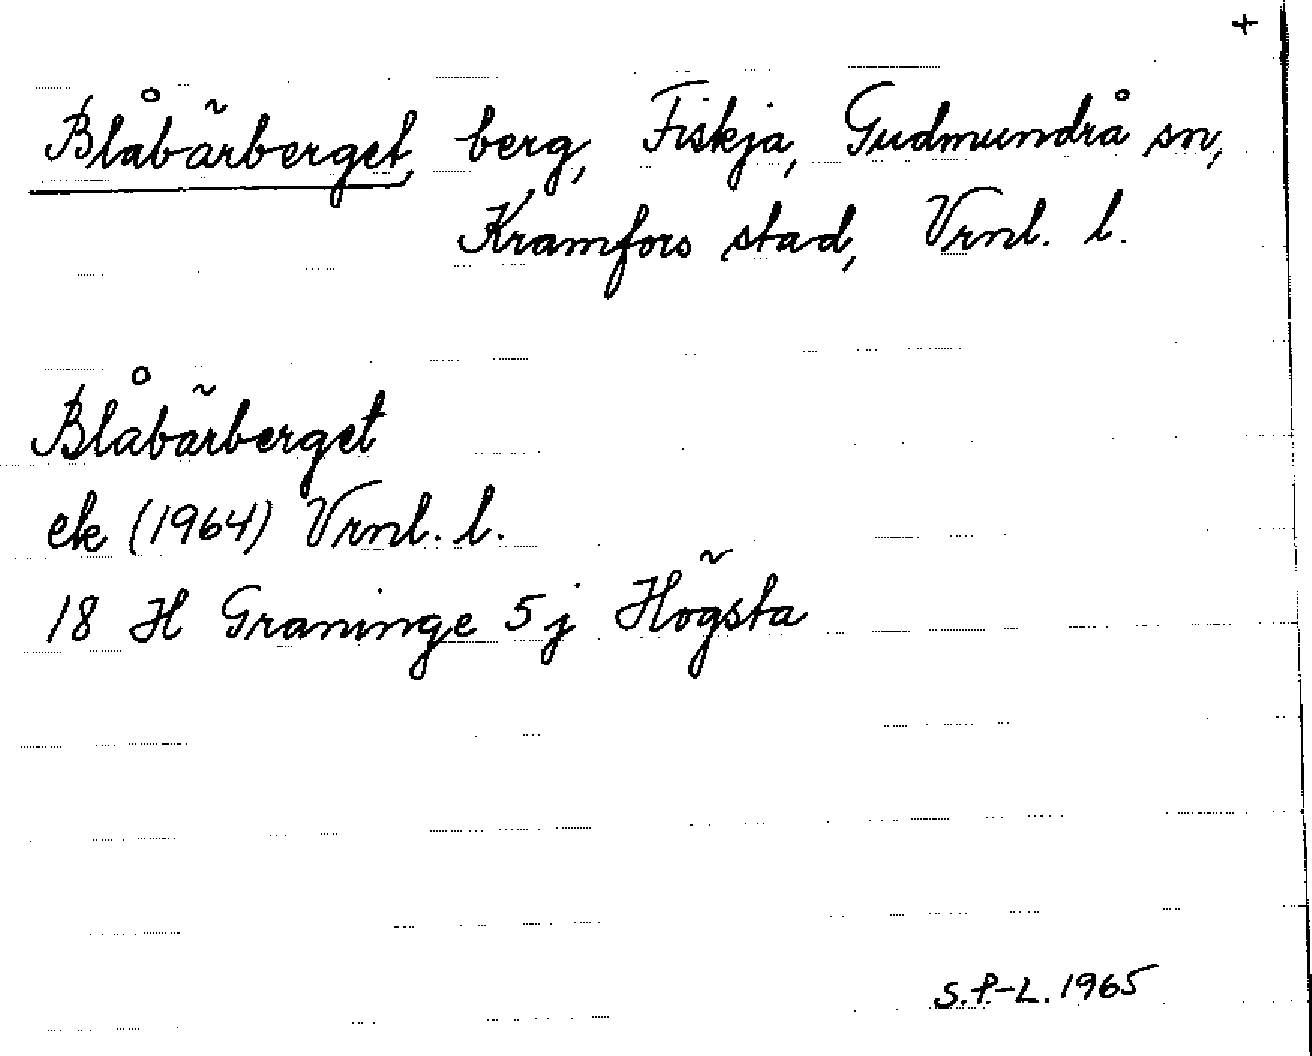 +
Blåbärberget, berg, Fiskja, Gudmundrå sn,
Kramfors stad, Vrnl. l.
Blåbärberget
ek (1964) Vrnl. l.
18 H Graninge 5 j Högsta
S.P-L. 1965